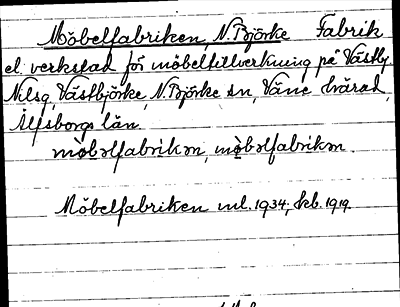 Möbelfabriken, N. Björke Fabrik
el. verkstad för möbeltillverkning på Västby
Nilsg, Västbjörke, N. Björke sn, Väne härad,
Älfsborgs län.
möbəlfabrikən, möbəlfabrikən.
Möbelfabriken ml. 1934; skb. 1919.